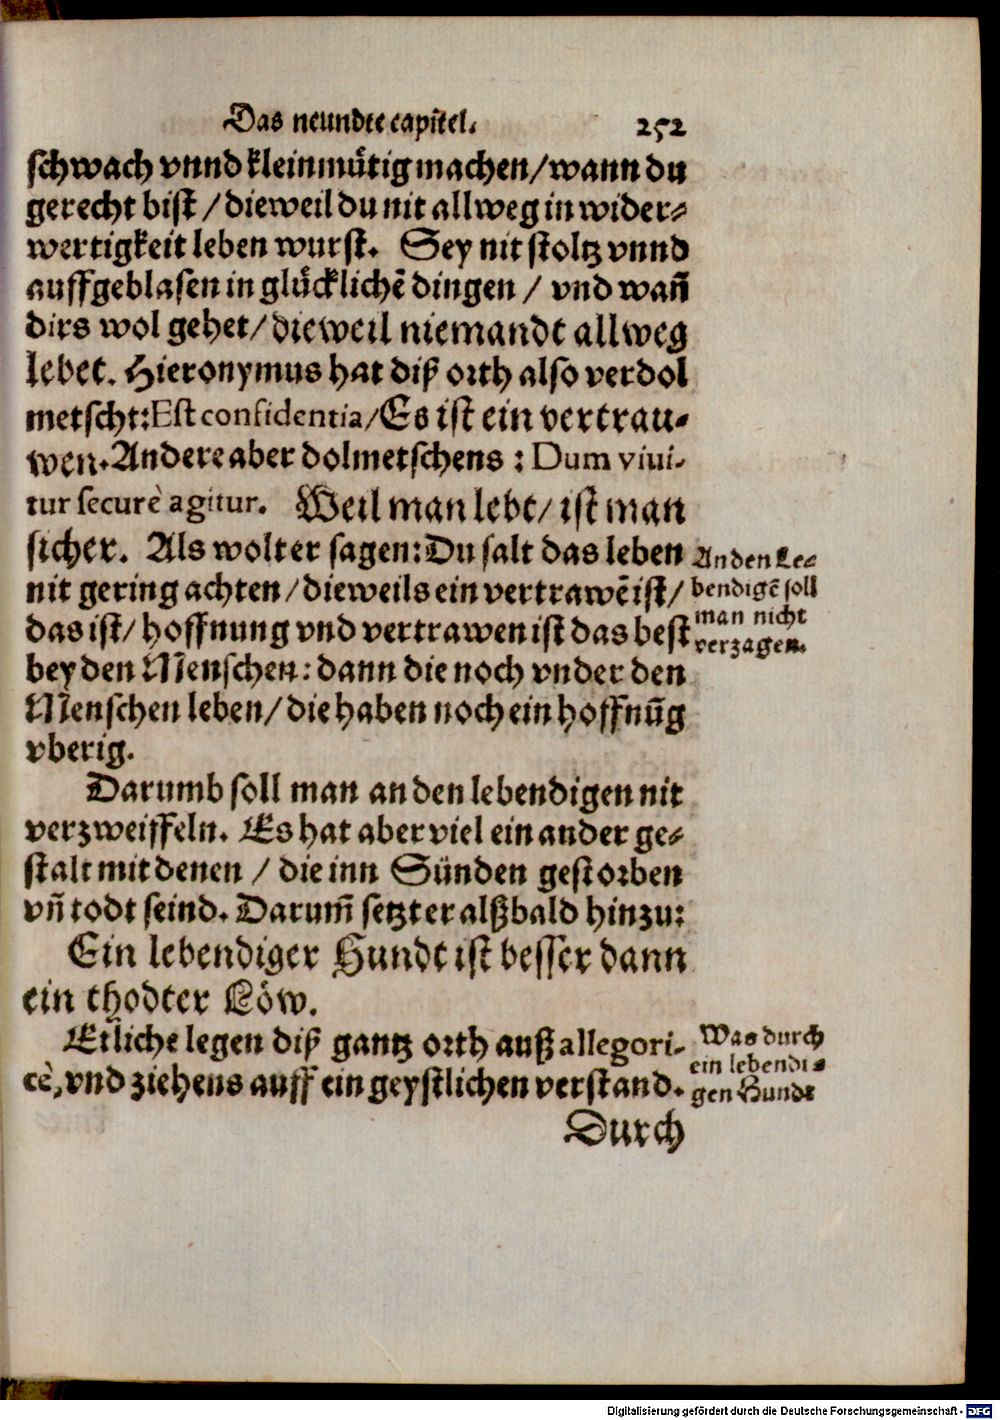 Das neundte capitel. 252
schwach vnnd kleinmütig machen/wann du
gerecht bist/dieweil du nit allweg in wider-
wertigkeit leben wurst. Sey nit stoltz vnnd
auffgeblasen in glücklichē dingen / vnd wañ
dirs wol gehet/dieweil niemandt allweg
lebet. Hieronymus hat diß orth also verdol
metscht: Est confidentia/Es ist ein vertrau-
wen. Andere aber dolmetschens : Dum viui-
tur securè agitur. Weil man lebt/ ist man
sicher. Als wolt er sagen: Du salt das leben
nit gering achten/dieweils ein vertrawē ist/
das ist/ hoffnung vnd vertrawen ist das best
bey den Menschen: dann die noch vnder den
Menschen leben/ die haben noch ein hoffnūg
vberig.
An den Le-
bendigē soll
man nicht
verzagen.
Darumb soll man an den lebendigen nit
verzweiffeln. Es hat aber viel ein ander ge-
stalt mit denen / die inn Sünden gestorben
vñ todt seind. Darum̃ setzt er alßbald hinzu:
Ein lebendiger Hundt ist besser dann
ein thodter Löw.
Etliche legen diß gantz orth auß allegori-
cè, vnd ziehens auff ein geystlichen verstand.
Was durch
ein lebendi-
gen Hundt
Durch
Digitalisierung gefördert durch die Deutsche Forschungsgemeinschaft - DFG